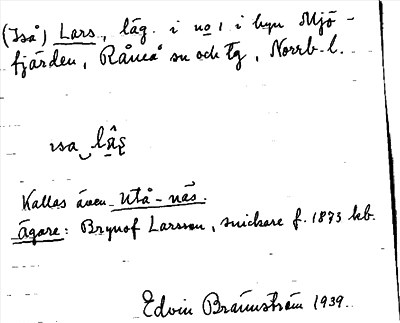 (Iså) Lars, läg. i no 1 i byn Mjö-
fjärden, Råneå sn och tg, Norrb. l.
ısa lâs
Kallas även Utå-näs.
Ägare: Brynof Larsson, snickare f. 1873 hb.
Edvin Brännström 1939.